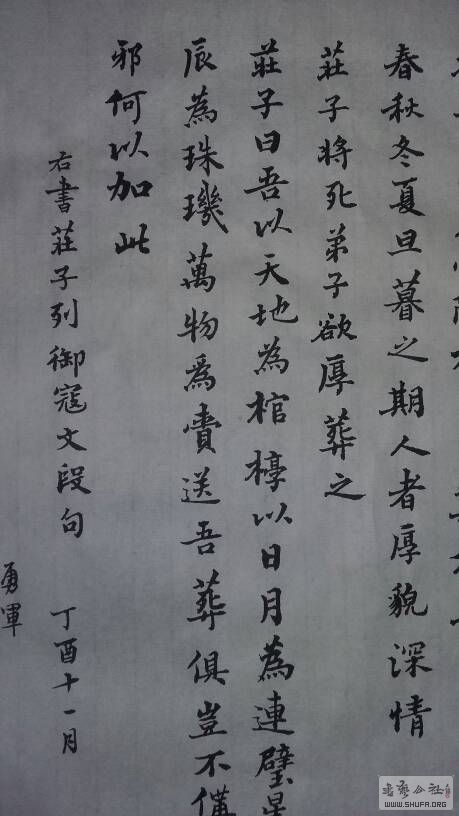 春秋冬夏旦暮之期人者厚貌深情
莊子將死弟子欲厚葬之
莊子曰吾以天地為棺椁以日月為連璧星
辰為珠璣萬物爲賷送吾葬俱豈不備
邪何以加此
右書莊子列御寇文段句 丁酉十一月
勇軍
WWW.SHUFA.ORG